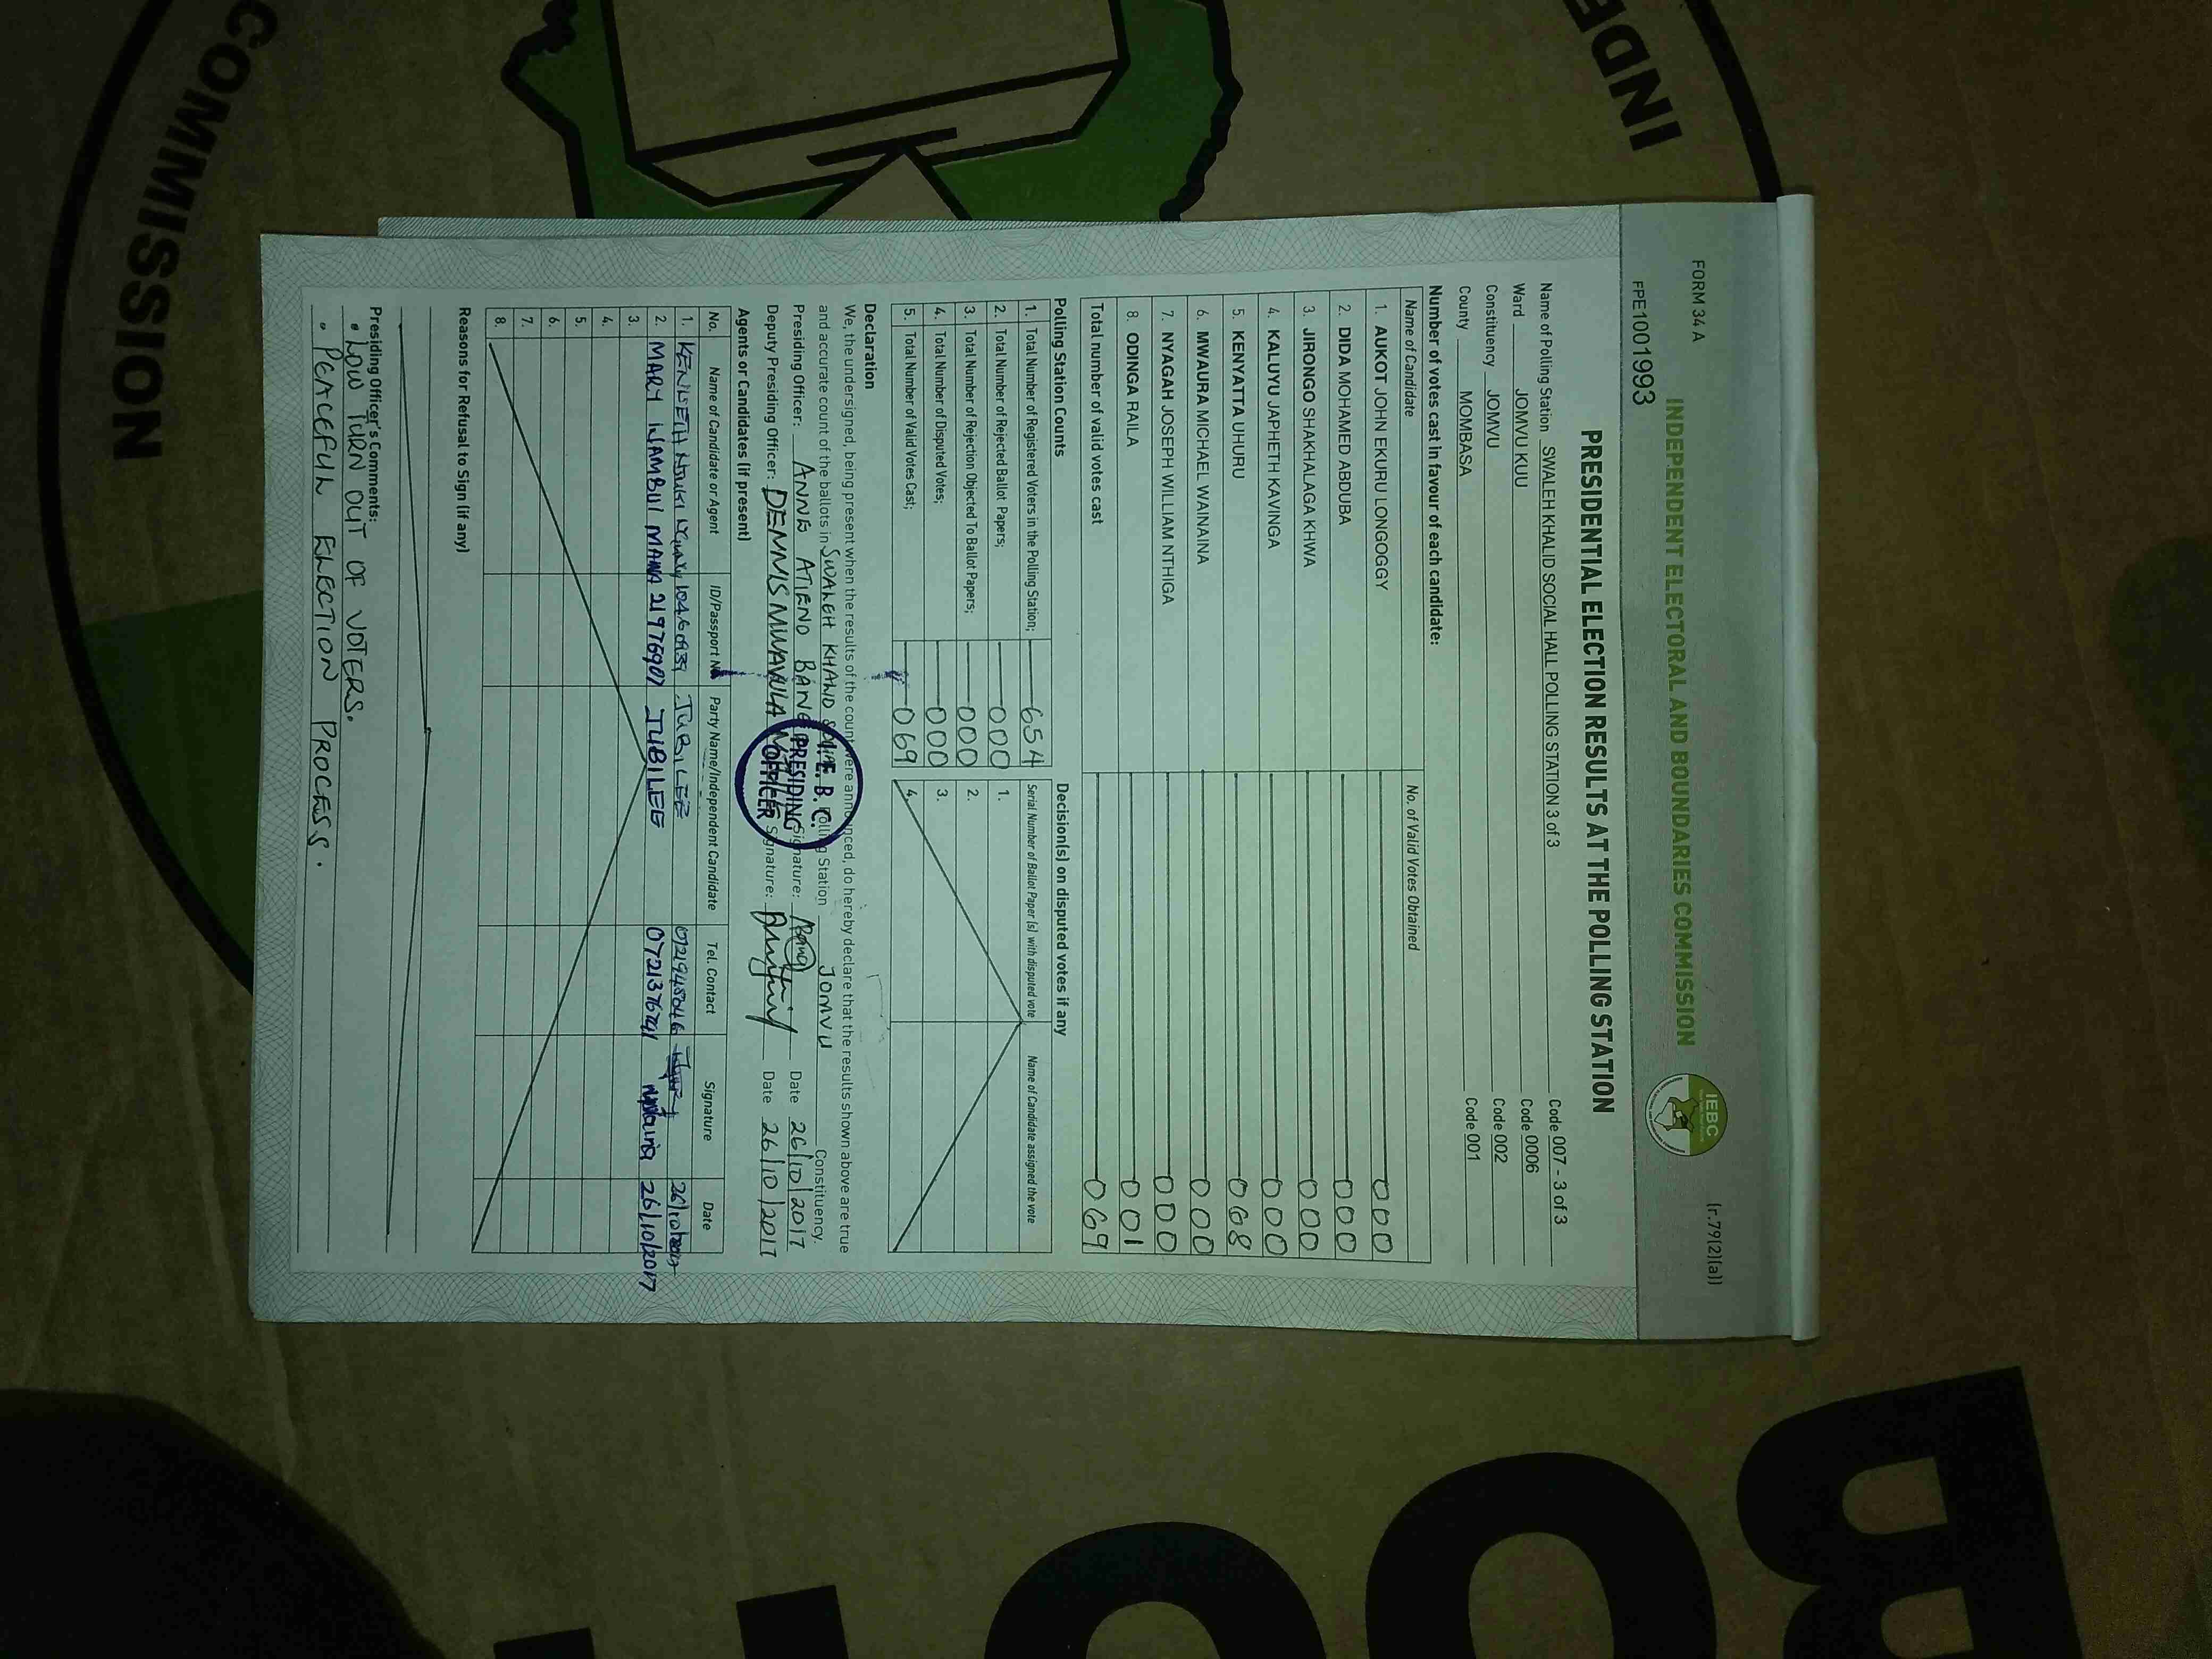 COMMISSION
INDE
BOOTH
FORM 34 A
(r.79(2)(a))
INDEPENDENT ELECTORAL AND BOUNDARIES COMMISSION
IEBC
FPE1001993
PRESIDENTIAL ELECTION RESULTS AT THE POLLING STATION
Name of Polling Station SWALEH KHALID SOCIAL HALL POLLING STATION 3 of 3 Code 007 - 3 of 3
Ward JOMVU KUU Code 0006
Constituency JOMVU Code 002
County MOMBASA Code 001
Number of votes cast in favour of each candidate:
Name of Candidate No. of Valid Votes Obtained
1. AUKOT JOHN EKURU LONGOGGY 000
2. DIDA MOHAMED ABDUBA 000
3. JIRONGO SHAKHALAGA KHWA 000
4. KALUYU JAPHETH KAVINGA 000
5. KENYATTA UHURU 068
6. MWAURA MICHAEL WAINAINA 000
7. NYAGAH JOSEPH WILLIAM NTHIGA 000
8. ODINGA RAILA 001
Total number of valid votes cast 069
Polling Station Counts
1. Total Number of Registered Voters in the Polling Station; 654
2. Total Number of Rejected Ballot Papers; 000
3. Total Number of Rejection Objected To Ballot Papers; 000
4. Total Number of Disputed Votes; 000
5. Total Number of Valid Votes Cast; 069
Decision(s) on disputed votes if any
Serial Number of Ballot Paper (s) with disputed vote Name of Candidate assigned the vote
1.
2.
3.
4.
Declaration
We, the undersigned, being present when the results of the count were announced, do hereby declare that the results shown above are true
and accurate count of the ballots in SWALEH KHALID Polling Station JOMVU Constituency.
Presiding Officer: ANNE ATIENO BANG Signature: Date 26/10/2017
Deputy Presiding Officer: DENNIS MWAVULA Signature: Date 26/10/2017
I.E.B.C.
PRESIDING
OFFICER
Agents or Candidates (if present)
No. Name of Candidate or Agent ID/Passport No. Party Name/Independent Candidate Tel. Contact Signature Date
1. KENNETH JUBILEE 26/10/2017
2. MARY WAMBUI MAINA 21976907 JUBILEE 26/10/2017
3.
4.
5.
6.
7.
8.
Reasons for Refusal to Sign (if any)
Presiding Officer's Comments:
• LOW TURN OUT OF VOTERS.
• PEACEFUL ELECTION PROCESS.